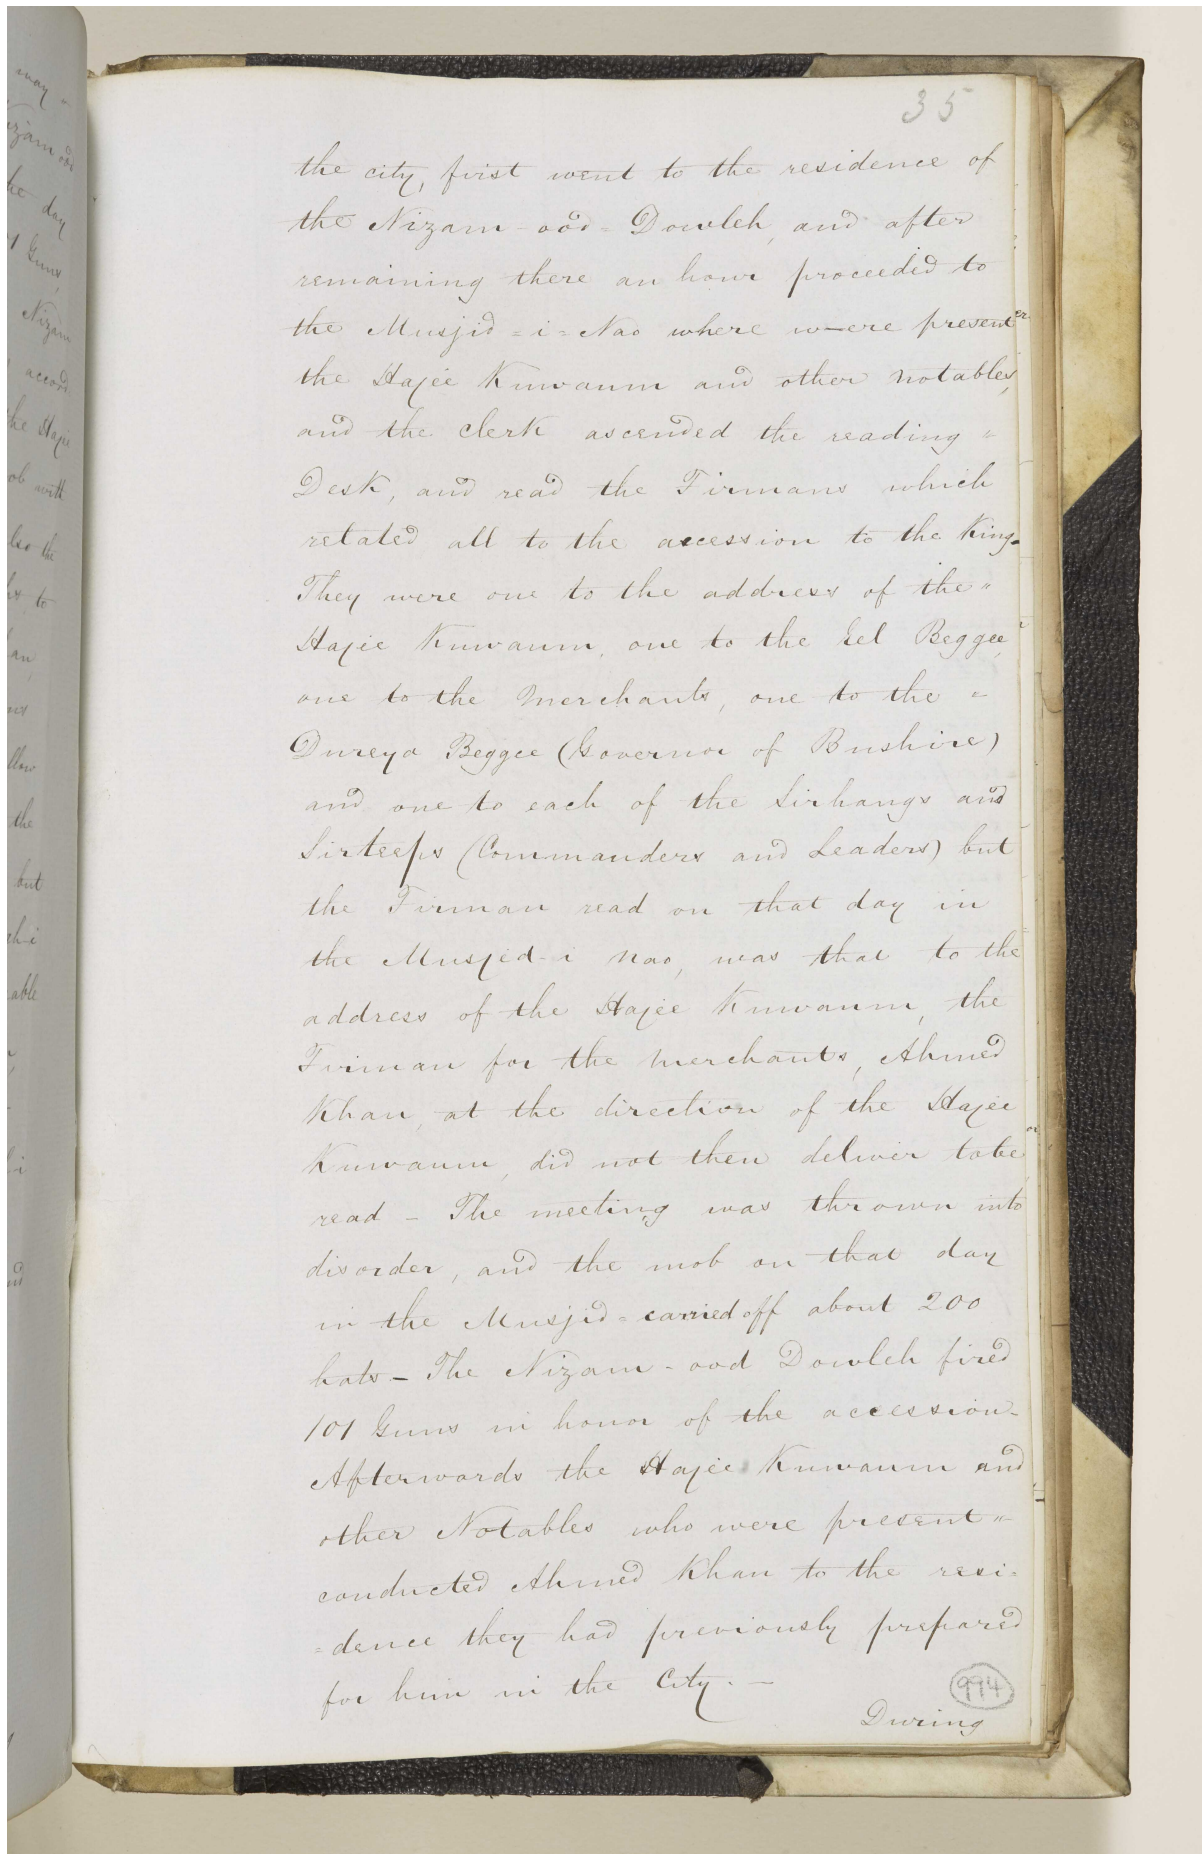 35
the city, first went to the residence of
the Nizam-ood-Dowleh, and after
remaining there an hour proceeded to
the Musjid-i-Nao where were present
the Hajee Kuwaum and other notables,
and the clerk ascended the reading "
Desk, and read the Firmans which
related all to the accession to the King.
They were one to the address of the "
Hajee Kuwaum, one to the Eel Beggee,
one to the Merchants, one to the =
Dureya Beggee (Governor of Bushire)
and one to each of the Sirhangs and
Sirteeps (Commanders and Leaders) but
the Firman read on that day in
the Musjed-i Nao, was that to the
address of the Hajee Kuwaum, the
Firman for the Merchants, Ahmed
Khan, at the direction of the Hajee
Kuwaum, did not then deliver to be
read - The meeting was thrown into
disorder, and the mob on that day
in the Musjid = carried off about 200
hats - The Nizam-ood Dowleh fired
101 Guns in honor of the accession -
Afterwards the Hajee Kuwaum and
other Notables who were present "
conducted Ahmed Khan to the resi=
=dence they had previously prepared
for him in the City. -
994
During